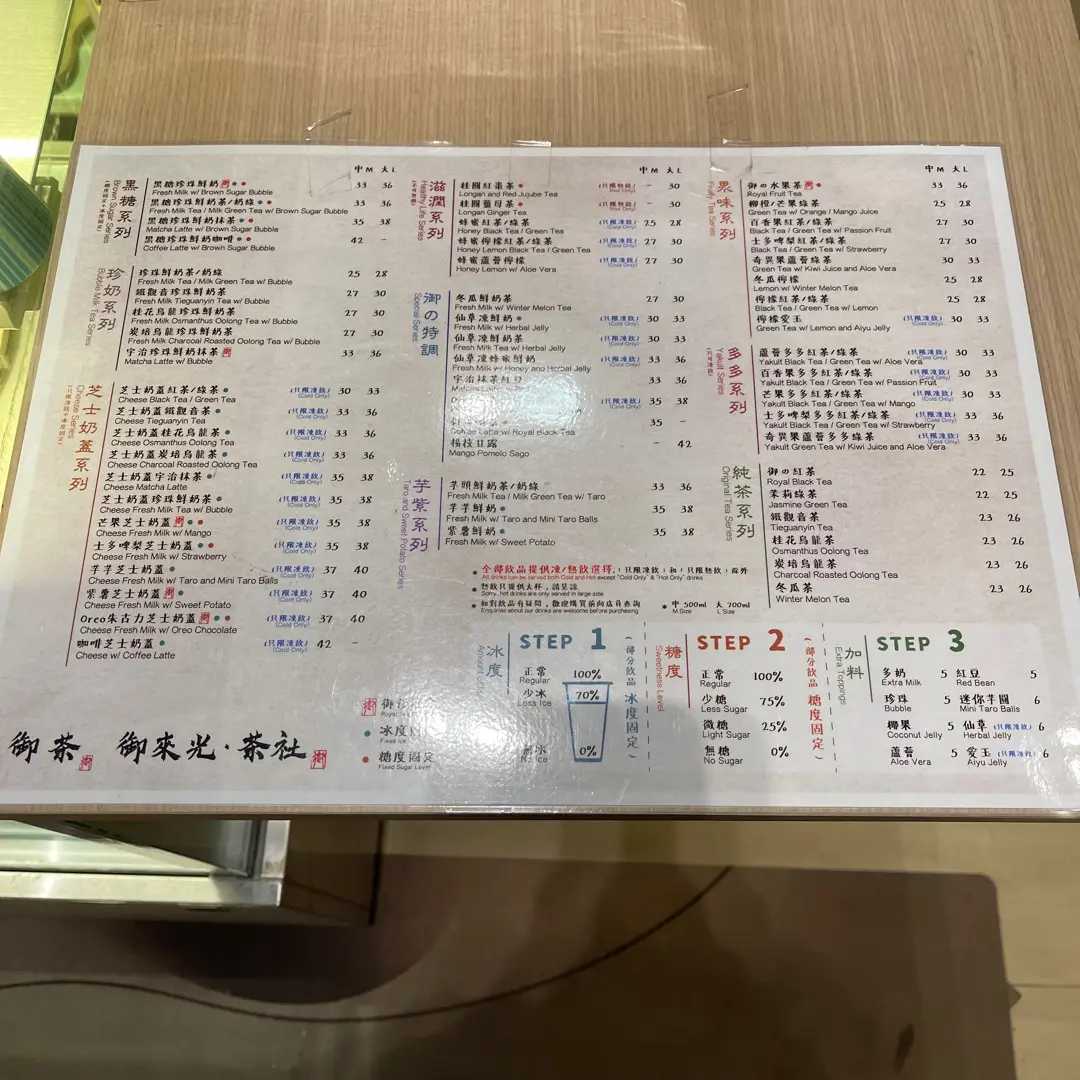 黑糖系列
Brown Sugar Series
中M 大L
黑糖珍珠鮮奶 33 36
Fresh Milk w/ Brown Sugar Bubble
黑糖珍珠鮮奶茶/奶綠 33 36
Fresh Milk Tea / Milk Green Tea w/ Brown Sugar Bubble
黑糖珍珠鮮奶抹茶 35 38
Matcha Latte w/ Brown Sugar Bubble
黑糖珍珠鮮奶咖啡 42 –
Coffee Latte w/ Brown Sugar Bubble
珍奶系列
Bubble Milk Tea Series
珍珠鮮奶茶/奶綠 25 28
Fresh Milk Tea / Milk Green Tea w/ Bubble
鐵觀音珍珠鮮奶茶 27 30
Fresh Milk Tieguanyin Tea w/ Bubble
桂花烏龍珍珠鮮奶茶 27 30
Fresh Milk Osmanthus Oolong Tea w/ Bubble
炭培烏龍珍珠鮮奶茶 27 30
Fresh Milk Charcoal Roasted Oolong Tea w/ Bubble
宇治珍珠鮮奶抹茶 33 36
Matcha Latte w/ Bubble
芝士奶蓋系列
Cheese Series
芝士奶蓋紅茶/綠茶 (只限凍飲) 30 33
Cheese Black Tea / Green Tea (Cold Only)
芝士奶蓋鐵觀音茶 (只限凍飲) 33 36
Cheese Tieguanyin Tea (Cold Only)
芝士奶蓋桂花烏龍茶 (只限凍飲) 33 36
Cheese Osmanthus Oolong Tea (Cold Only)
芝士奶蓋炭培烏龍茶 (只限凍飲) 33 36
Cheese Charcoal Roasted Oolong Tea (Cold Only)
芝士奶蓋宇治抹茶 (只限凍飲) 35 38
Cheese Matcha Latte (Cold Only)
芝士奶蓋珍珠鮮奶茶 (只限凍飲) 35 38
Cheese Fresh Milk Tea w/ Bubble (Cold Only)
芒果芝士奶蓋 (只限凍飲) 35 38
Cheese Fresh Milk w/ Mango (Cold Only)
士多啤梨芝士奶蓋 (只限凍飲) 35 38
Cheese Fresh Milk w/ Strawberry (Cold Only)
芋芋芝士奶蓋 (只限凍飲) 37 40
Cheese Fresh Milk w/ Taro and Mini Taro Balls (Cold Only)
紫薯芝士奶蓋 (只限凍飲) 37 40
Cheese Fresh Milk w/ Sweet Potato (Cold Only)
Oreo朱古力芝士奶蓋 (只限凍飲) 37 40
Cheese Fresh Milk w/ Oreo Chocolate (Cold Only)
咖啡芝士奶蓋 (只限凍飲) 42 –
Cheese w/ Coffee Latte (Cold Only)
御茶 御來光·茶社
冰度
Fixed Ice
糖度固定
Fixed Sugar Level
滋潤系列
Healthy Life Series
中M 大L
桂圓紅棗茶 (只限熱飲) – 30
Longan and Red Jujube Tea (Hot Only)
桂圓薑母茶 (只限熱飲) – 30
Longan Ginger Tea (Hot Only)
蜂蜜紅茶/綠茶 (只限凍飲) 25 28
Honey Black Tea / Green Tea (Cold Only)
蜂蜜檸檬紅茶/綠茶 (只限凍飲) 27 30
Honey Lemon Black Tea / Green Tea (Cold Only)
蜂蜜蘆薈檸檬 (只限凍飲) 27 30
Honey Lemon w/ Aloe Vera (Cold Only)
御の特調
Special Series
冬瓜鮮奶茶 27 30
Fresh Milk w/ Winter Melon Tea
仙草凍鮮奶 (只限凍飲) 30 33
Fresh Milk w/ Herbal Jelly (Cold Only)
仙草凍鮮奶茶 (只限凍飲) 30 33
Fresh Milk Tea w/ Herbal Jelly (Cold Only)
仙草凍蜂蜜鮮奶 (只限凍飲) 33 36
Fresh Milk w/ Honey and Herbal Jelly (Cold Only)
宇治抹茶紅豆 33 36
(只限凍飲) 35 38
(Cold Only)
35 –
Latte w/ Royal Black Tea
楊枝甘露 – 42
Mango Pomelo Sago
芋紫系列
Taro and Sweet Potato Series
芋頭鮮奶茶/奶綠 33 36
Fresh Milk Tea / Milk Green Tea w/ Taro
芋芋鮮奶 35 38
Fresh Milk w/ Taro and Mini Taro Balls
紫薯鮮奶 35 38
Fresh Milk w/ Sweet Potato
* 全部飲品提供凍/熱飲選擇,(只限凍飲)和(只限熱飲)除外
All drinks can be served both Cold and Hot except "Cold Only" & "Hot Only" drinks
* 熱飲只提供大杯,請見諒
Sorry, hot drinks are only served in large size
* 如對飲品有疑問,歡迎購買前向店員查詢
Enquiries about our drinks are welcome before purchasing
* 中 500ml 大 700ml
M Size L Size
果味系列
Fruity Tea Series
中M 大L
御の水果茶 33 36
Royal Fruit Tea
柳橙/芒果綠茶 25 28
Green Tea w/ Orange / Mango Juice
百香果紅茶/綠茶 27 30
Black Tea / Green Tea w/ Passion Fruit
士多啤梨紅茶/綠茶 27 30
Black Tea / Green Tea w/ Strawberry
奇異果蘆薈綠茶 30 33
Green Tea w/ Kiwi Juice and Aloe Vera
冬瓜檸檬 25 28
Lemon w/ Winter Melon Tea
檸檬紅茶/綠茶 25 28
Black Tea / Green Tea w/ Lemon
檸檬愛玉 (只限凍飲) 30 33
Green Tea w/ Lemon and Aiyu Jelly (Cold Only)
多多系列
Yakult Series
(只可凍飲)
蘆薈多多紅茶/綠茶 (只限凍飲) 30 33
Yakult Black Tea / Green Tea w/ Aloe Vera (Cold Only)
百香果多多紅茶/綠茶 (只限凍飲) 30 33
Yakult Black Tea / Green Tea w/ Passion Fruit (Cold Only)
芒果多多紅茶/綠茶 (只限凍飲) 30 33
Yakult Black Tea / Green Tea w/ Mango (Cold Only)
士多啤梨多多紅茶/綠茶 (只限凍飲) 33 36
Yakult Black Tea / Green Tea w/ Strawberry (Cold Only)
奇異果蘆薈多多綠茶 (只限凍飲) 33 36
Yakult Green Tea w/ Kiwi Juice and Aloe Vera (Cold Only)
純茶系列
Original Tea Series
御の紅茶 22 25
Royal Black Tea
茉莉綠茶 22 25
Jasmine Green Tea
鐵觀音茶 23 26
Tieguanyin Tea
桂花烏龍茶 23 26
Osmanthus Oolong Tea
炭培烏龍茶 23 26
Charcoal Roasted Oolong Tea
冬瓜茶 23 26
Winter Melon Tea
冰度
STEP 1
(部分飲品冰度固定)
正常 100%
Regular
少冰 70%
Less Ice
0%
No Ice
糖度
Sweetness Level
STEP 2
(部分飲品糖度固定)
正常 100%
Regular
少糖 75%
Less Sugar
微糖 25%
Light Sugar
無糖 0%
No Sugar
加料
Extra Toppings
STEP 3
多奶 5 紅豆 5
Extra Milk Red Bean
珍珠 5 迷你芋圓 6
Bubble Mini Taro Balls
椰果 5 仙草 (只限凍飲) 6
Coconut Jelly Herbal Jelly (Cold Only)
蘆薈 5 愛玉 (只限凍飲) 6
Aloe Vera Aiyu Jelly (Cold Only)